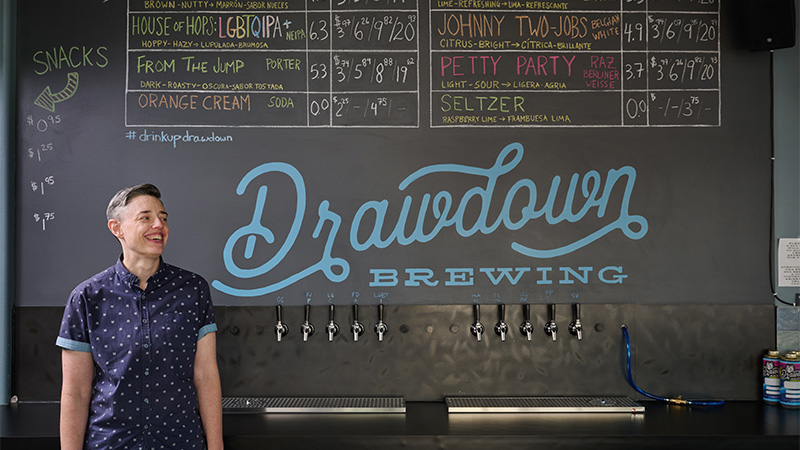 BROWN-NUTTY → MARRÓN-SABOR NUECES
HOUSE OF HOPS: LGBTQIPA+ NEIPA 6.3 $3⁹⁷/6²⁶/9⁸²/20⁹³
HOPPY-HAZY → LUPULADA-BRUMOSA
FROM THE JUMP PORTER 5.3 $3⁷⁴/5⁸⁹/8⁸⁸/19⁶²
DARK-ROASTY-OSCURA-SABOR TOSTADA
ORANGE CREAM SODA 0.0 $2²⁵/-/4⁷⁵/-
LIME-REFRESHING → LIMA-REFRESCANTE
JOHNNY TWO-JOBS BELGIAN WHITE 4.9
CITRUS-BRIGHT → CÍTRICA-BRILLANTE
PETTY PARTY RAZ BERLINER WEISSE 3.7
LIGHT-SOUR → LIGERA-AGRIA
SELTZER 0.0 $-/-/3⁷⁵/-
RASPBERRY LIME → FRAMBUESA LIMA
SNACKS
$0⁹⁵
$1²⁵
$1⁹⁵
$1⁷⁵
#drinkupdrawdown
Drawdown
BREWING